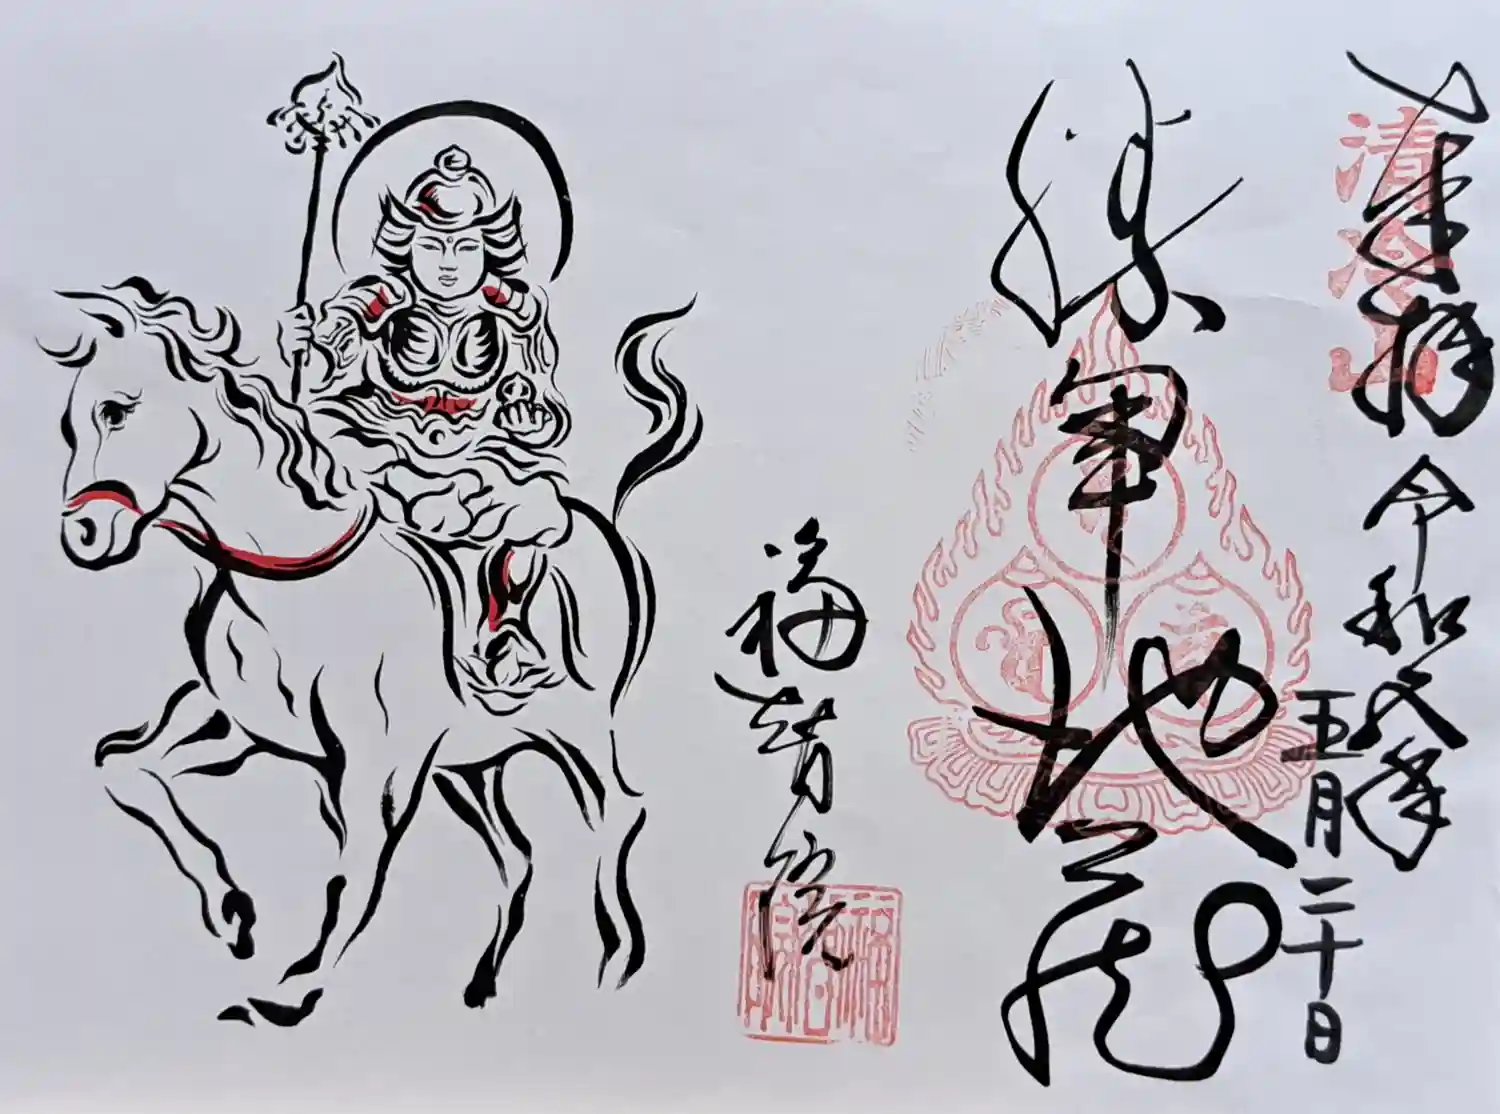 奉拝 令和六年
五月二十日
清冷山
勝軍地蔵
福智院
福智院